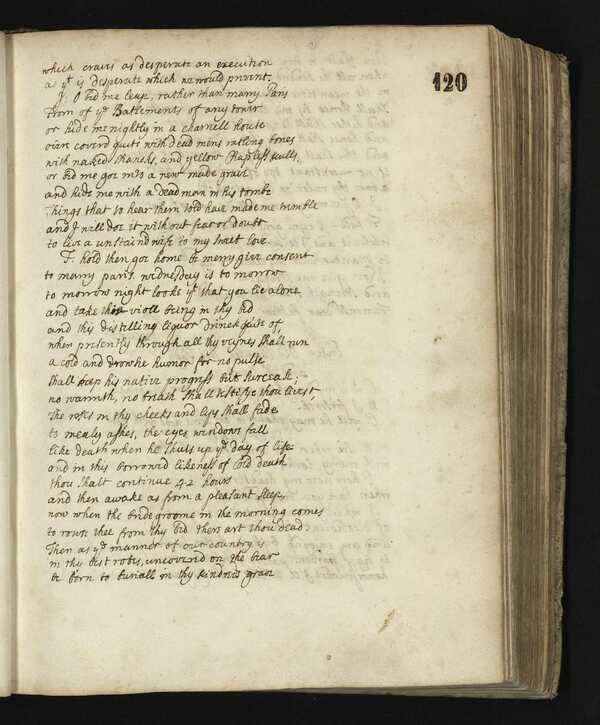 120
which craves as desperate an execution
as yt is desperate which we would prevent.
J. O bid me leap, rather than marry Paris
From of ye Batlements of any tower
or hide me nightly in a charnell house
over coverd quite with dead mens ratling bones
with naked shanks, and yellow Chapless sculls,
or bid me goe into a new made grave
and hide me with a dead man in his tombe
Things that to hear them told have made me tremble
and I will doe it without fear or doubt
to live a unstaind wife to my sweet love.
F. hold then goe home be merry give consent
to marry paris wednesday is to morrow
to morrow night looke yt that you lie alone
and take this violl being in thy bed
and this distilling liquor drinck quite of
when presently through all thy veynes shall run
a cold and drowsie humor for no pulse
shall keep his native progress but surcease;
no warmth, no breath shall testifye thou livest,
The roses in thy cheeks and lips shall fade
to mealy ashes, the eyes windows fall
like death when he shuts up ye day of life
and in this borrowed likeness of cold death
thou shalt continue 42 hours
and then awake as from a pleasant sleep,
now when the bridegroome in the morning comes
to rouse thee from thy bed there art thou dead
Then as ye manner of our country is
in thy best robes, uncoverd on the bear
be born to buriall in thy kindreds grave